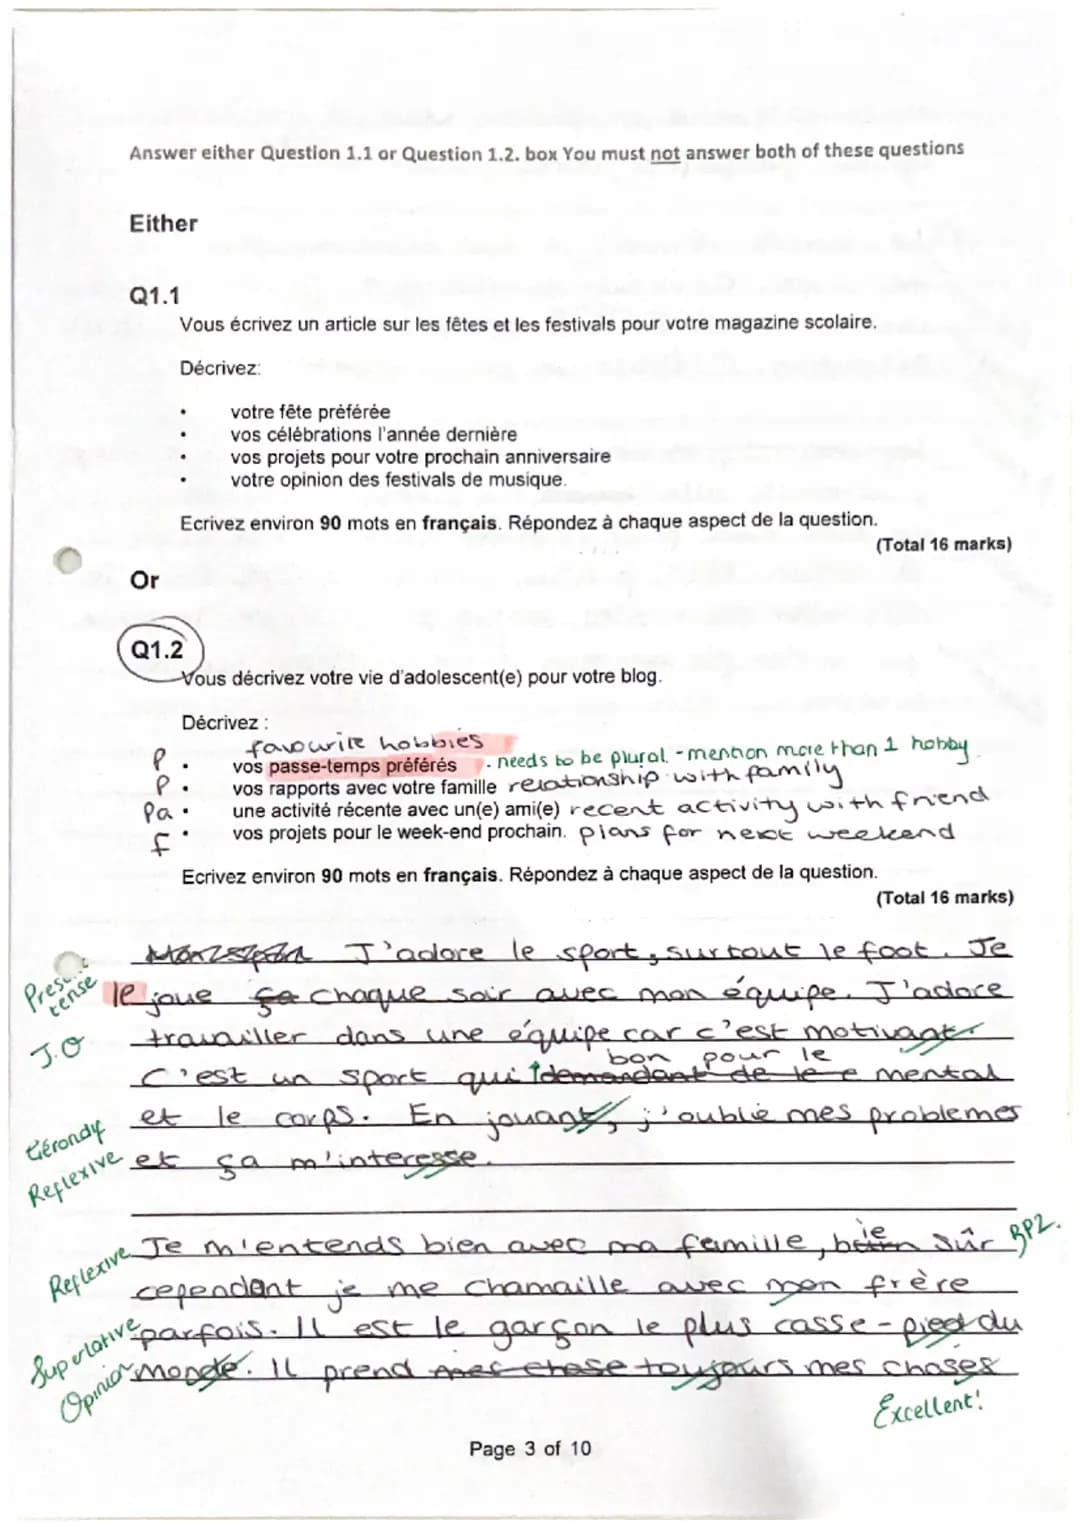 Answer either Question 1.1 or Question 1.2. box You must not answer both of these questions
Either
Q1.1
Vous écrivez un article sur les fêtes et les festivals pour votre magazine scolaire.
Décrivez:
• votre fête préférée
• vos célébrations l'année dernière
• vos projets pour votre prochain anniversaire
• votre opinion des festivals de musique.
Ecrivez environ 90 mots en français. Répondez à chaque aspect de la question.
(Total 16 marks)
Or
Q1.2
Vous décrivez votre vie d'adolescent(e) pour votre blog.
Décrivez :
favourite hobbies
P • vos passe-temps préférés . needs to be plural - mention more than 1 hobby
P • vos rapports avec votre famille relationship with family
Pa • une activité récente avec un(e) ami(e) recent activity with friend
f • vos projets pour le week-end prochain. plans for next weekend
Ecrivez environ 90 mots en français. Répondez à chaque aspect de la question.
(Total 16 marks)
J'adore le sport, surtout le foot. Je
Present tense
le joue ça chaque soir avec mon équipe. J'adore
J.O
travailler dans une équipe car c'est motivant.
bon pour le
C'est un sport qui demandant de le e mental
et le corps. En jouant, j'oublie mes problemes
Gérondif
Reflexive
et ça m'interesse.
Reflexive
Je m'entends bien avec ma famille, bien sûr BP2.
cependant je me chamaille avec mon frère
Superlative
parfois. Il est le garçon le plus casse-pied du
Opinion
monde. Il prend mes chose toujours mes choses
Excellent!
Page 3 of 10